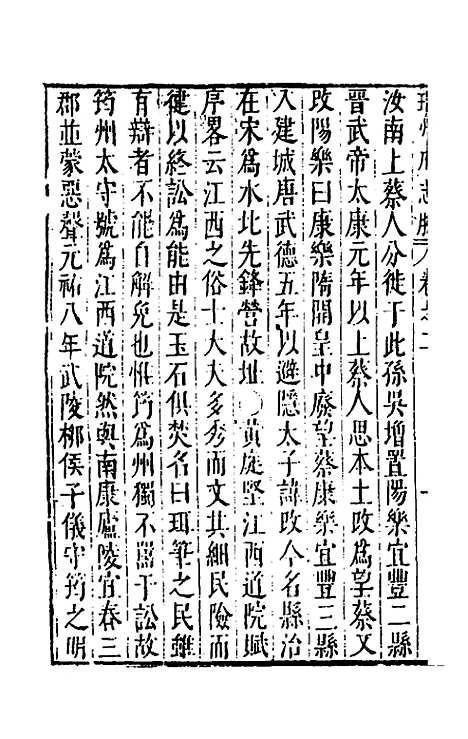 瑞州府志勝 卷之二 一
汝南上蔡人分徙于此孫吳增置陽樂宜豐二縣
晉武帝太康元年以上蔡人思本土改為望蔡又
改陽樂曰康樂隋開皇中廢望蔡康樂宜豐三縣
入建城唐武德五年以避隱太子諱改今名縣治
在宋為水北先鋒營故址 黃庭堅江西道院賦
序畧云江西之俗士大夫多秀而文其細民險而
健以終訟為能由是玉石俱焚名曰珥筆之民雖
有辯者不能自解免也惟筠為州獨不嚚于訟故
筠州太守號為江西道院然與南康廬陵宜春三
郡並蒙惡聲元祐八年武陵柳侯子儀守筠之明